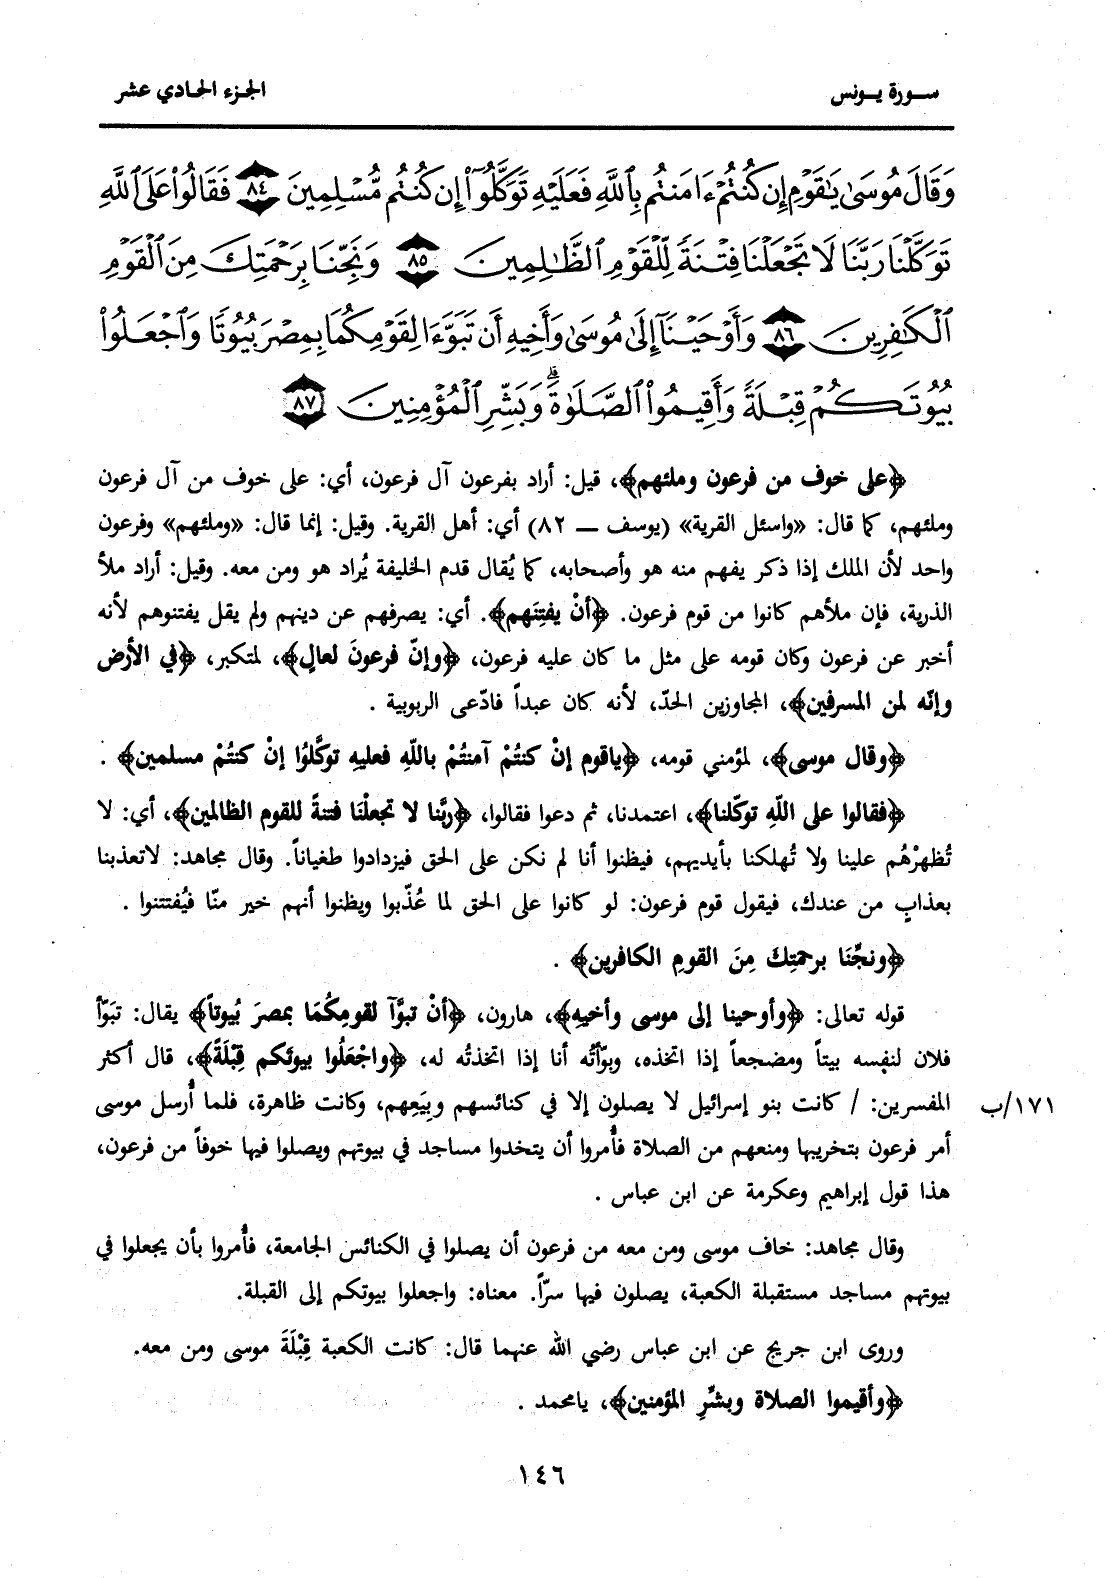 سورة يونس
الجزء الحادي عشر
وَقَالَ مُوسَىٰ يَٰقَوْمِ إِن كُنتُمْ ءَامَنتُم بِٱللَّهِ فَعَلَيْهِ تَوَكَّلُوٓا۟ إِن كُنتُم مُّسْلِمِينَ ٨٤ فَقَالُوا۟ عَلَى ٱللَّهِ
تَوَكَّلْنَا رَبَّنَا لَا تَجْعَلْنَا فِتْنَةً لِّلْقَوْمِ ٱلظَّٰلِمِينَ ٨٥ وَنَجِّنَا بِرَحْمَتِكَ مِنَ ٱلْقَوْمِ
ٱلْكَٰفِرِينَ ٨٦ وَأَوْحَيْنَآ إِلَىٰ مُوسَىٰ وَأَخِيهِ أَن تَبَوَّءَا لِقَوْمِكُمَا بِمِصْرَ بُيُوتًا وَٱجْعَلُوا۟
بُيُوتَكُمْ قِبْلَةً وَأَقِيمُوا۟ ٱلصَّلَوٰةَ ۗ وَبَشِّرِ ٱلْمُؤْمِنِينَ ٨٧
﴿على خوف من فرعون وملئهم﴾، قيل: أراد بفرعون آل فرعون، أي: على خوف من آل فرعون
وملئهم، كما قال: «واسئل القرية» (يوسف ــ ٨٢) أي: أهل القرية. وقيل: إنما قال: «وملئهم» وفرعون
واحد لأن الملك إذا ذكر يفهم منه هو وأصحابه، كما يُقال قدم الخليفة يُراد هو ومن معه. وقيل: أراد ملأ
الذرية، فإن ملأهم كانوا من قوم فرعون. ﴿أنْ يفتِنَهم﴾. أي: يصرفهم عن دينهم ولم يقل يفتنوهم لأنه
أخبر عن فرعون وكان قومه على مثل ما كان عليه فرعون، ﴿وإنّ فرعونَ لعالٍ﴾، لمتكبر، ﴿في الأرض
وإنّه لمن المسرفين﴾، المجاوزين الحدّ، لأنه كان عبداً فادّعى الربوبية .
﴿وقال موسى﴾، لمؤمني قومه، ﴿ياقوم إنْ كنتُمْ آمنتُمْ باللّهِ فعليهِ توكَّلُوا إنْ كنتُمْ مسلمين﴾ .
﴿فقالوا على اللّهِ توكّلنا﴾، اعتمدنا، ثم دعوا فقالوا، ﴿ربَّنا لا تجعلْنَا فتنةً للقوم الظالمين﴾، أي: لا
تُظهرْهُم علينا ولا تُهلكنا بأيديهم، فيظنوا أنا لم نكن على الحق فيزدادوا طغياناً. وقال مجاهد: لاتعذبنا
بعذابٍ من عندك، فيقول قوم فرعون: لو كانوا على الحق لما عُذّبوا ويظنوا أنهم خير منّا فيُفتتنوا .
﴿ونجِّنَا برحمتِكَ مِنَ القومِ الكافرين﴾ .
قوله تعالى: ﴿وأوحينا إلى موسى وأخيهِ﴾، هارون، ﴿أنْ تبوَّآ لقومِكُمَا بمصرَ بُيوتاً﴾ يقال: تبَوّأ
فلان لنفسه بيتاً ومضجعاً إذا اتخذه، وبوّأتُه أنا إذا اتخذتُه له، ﴿واجْعَلُوا بيوتَكم قِبْلَةً﴾، قال أكثر
المفسرين: / كانت بنو إسرائيل لا يصلون إلا في كنائسهم وبِيَعِهم، وكانت ظاهرة، فلما أُرسل موسى ١٧١/ب
أمر فرعون بتخريبها ومنعهم من الصلاة فأُمروا أن يتخدوا مساجد في بيوتهم ويصلوا فيها خوفاً من فرعون،
هذا قول إبراهيم وعكرمة عن ابن عباس .
وقال مجاهد: خاف موسى ومن معه من فرعون أن يصلوا في الكنائس الجامعة، فأُمروا بأن يجعلوا في
بيوتهم مساجد مستقبلة الكعبة، يصلون فيها سرّاً. معناه: واجعلوا بيوتكم إلى القبلة.
وروى ابن جريج عن ابن عباس رضي الله عنهما قال: كانت الكعبة قِبْلَةَ موسى ومن معه.
﴿وأقيموا الصلاة وبشّرِ المؤمنين﴾، يامحمد .
١٤٦